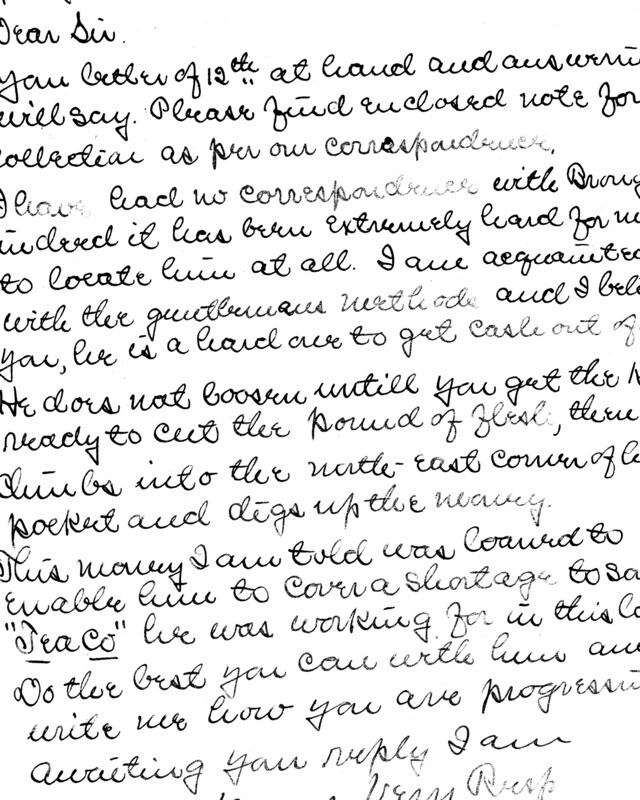 Dear Sir.
You letter of 12th at hand and answerin
will say. Please find enclosed note for
collection as per our correspondence.
I have had no correspondence with Brow
indeed it has been extremely hard for m
to locate him at all. I am acquainted
with the gentlemans methods and I bel
you, he is a hard one to get cash out of
He does not loosen untill you get the k
ready to cut the pound of flesh, then
climbs into the north-east corner of h
pocket and digs up the money.
This money I am told was loaned to
enable him to cover a shortage to sa
"Tea Co" he was working for in this lo
Do the best you can with him and
write me how you are progressin
awaiting you reply I am
Very Resp